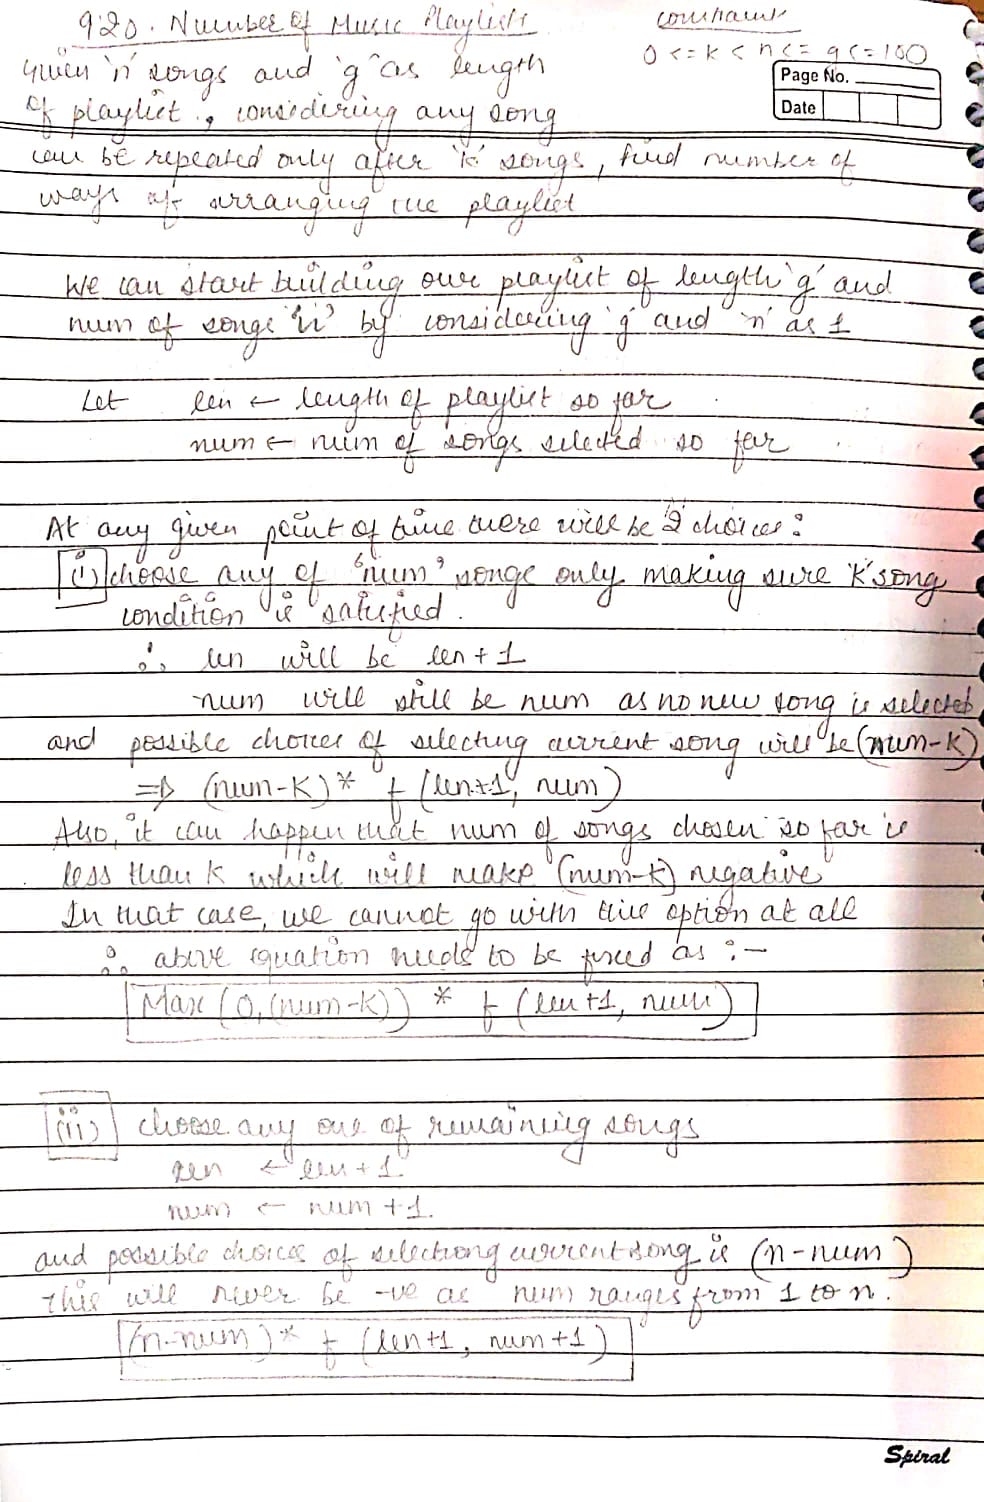 920. Number of Music Playlists
constraints
0 <= k < n <= g <= 100
Given 'n' songs and 'g' as length
Page No.
of playlist, considering any song
Date
can be repeated only after 'k' songs, find number of
ways of arranging the playlist
We can start building our playlist of length 'g' and
num of songs 'n' by considering 'g' and 'n' as 1
Let len ← length of playlist so far
num ← num of songs selected so far
At any given point of time there will be '2' choices:
(i) choose any of 'num' songs only making sure 'k' song
condition is satisfied.
∴ len will be len+1
num will still be num as no new song is selected
and possible choices of selecting current song will be (num-k)
⇒ (num-k) * f (len+1, num)
Also, it can happen that num of songs chosen so far is
less than k which will make (num-k) negative
In that case, we cannot go with this option at all
∴ above equation needs to be fixed as :-
Max (0,(num-k)) * f (len+1, num)
(ii) choose any one of remaining songs
len ← len+1
num ← num+1.
and possible choices of selecting current song is (n-num)
This will never be -ve as num ranges from 1 to n.
(n-num) * f (len+1, num+1)
Spiral